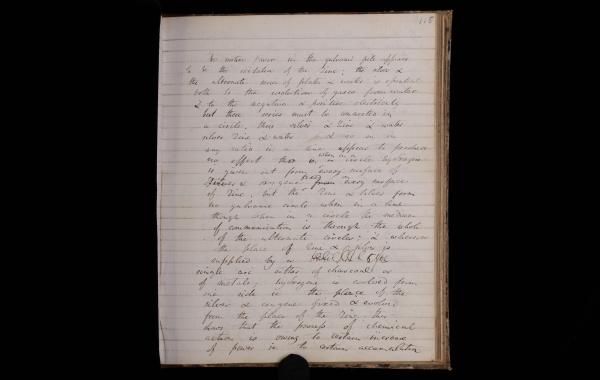 118
The motive power in the galvanic pile appears
to be the oxidation of the Zinc; the silver &
the alternate series of plates & water is essential
both to the evolution of gases from water
& to the negative & positive electricity
but these series must be connected in
a circle, thus silver & Zinc & water
silver Zinc & water & so on in
any ratio in a line appear to produce
no effect when in a
circle hydrogene
is given out from every surface of
Silver & oxygene fixed on every surface
of Zinc, but the Zinc & silver form
no galvanic circle when in a line
though when in a circle the medium
of communication is through the whole
of the alternate circles; & whenever
the place of Zinc & silver is
supplied by a
single arc either of charcoal or
of metals; hydrogene is evolved from
one side in the place of the
silver & oxygene fixed & evolved
from the place of the Zinc. This
shews that the process of chemical
action is owing to certain increase
of power in to certain accumulation